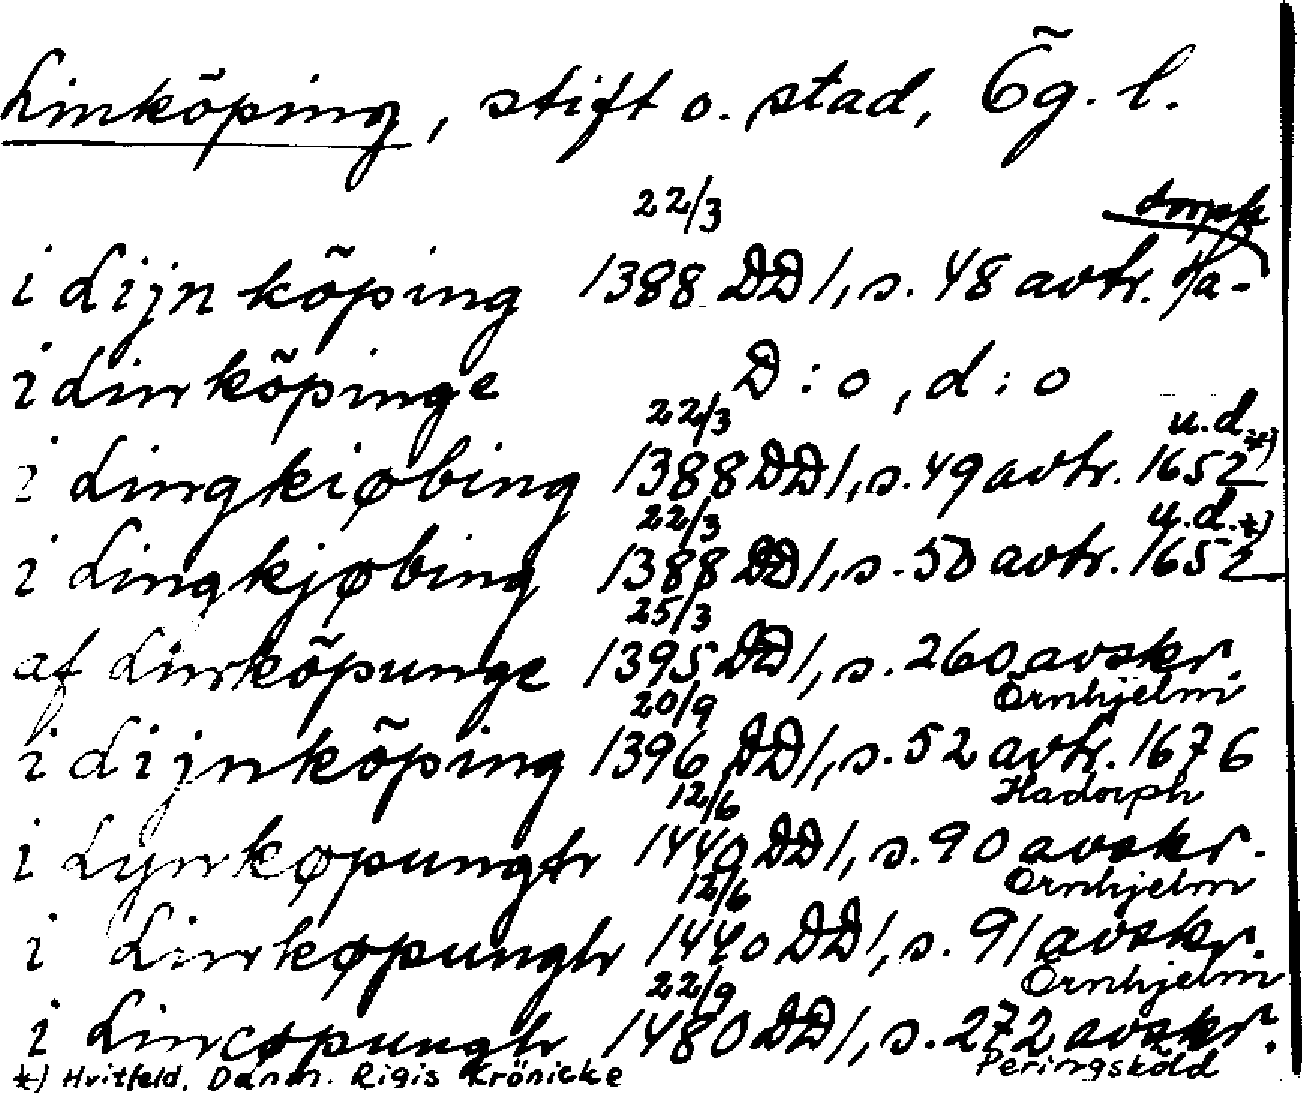 Linköping, stift o. stad, Ög. l.
i Lijnköping 22/3 1388 DD 1, s. 48 avtr. Ha-
dorph
i Linköpinge D:o, d:o
i Lingkiøbing 22/3 1388 DD 1, s. 49 avtr. 1652 u.d. *)
i Lingkjøbing 22/3 1388 DD 1, s. 50 avtr. 1652 u.d. *)
af Linköpunge 25/3 1395 DD 1, s. 260 avskr. Örnhjelm
i Lijnköping 20/9 1396 DD 1, s. 52 avtr. 1676 Hadorph
i Lynkøpungh 12/6 1440 DD 1, s. 90 avskr. Örnhjelm
i Linkøpungh 12/6 1440 DD 1, s. 91 avskr. Örnhjelm
i Lincøpungh 22/9 1480 DD 1, s. 272 avskr. Peringsköld
*) Hvitfeld, Danm. Rigis Krönicke